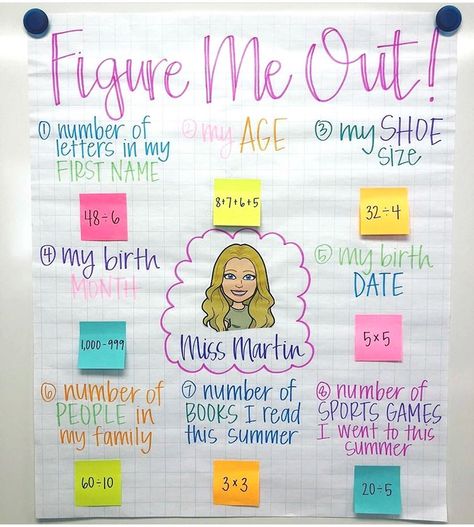 Figure Me Out!
① number of
letters in my
FIRST NAME
48÷6
② my AGE
8+7+6+5
③ my SHOE
size
32÷4
④ my birth
MONTH
1,000-999
Miss Martin
⑤ my birth
DATE
5×5
⑥ number of
PEOPLE in
my family
60÷10
⑦ number of
BOOKS I read
this summer
3×3
⑧ number of
SPORTS GAMES
I went to this
summer
20÷5